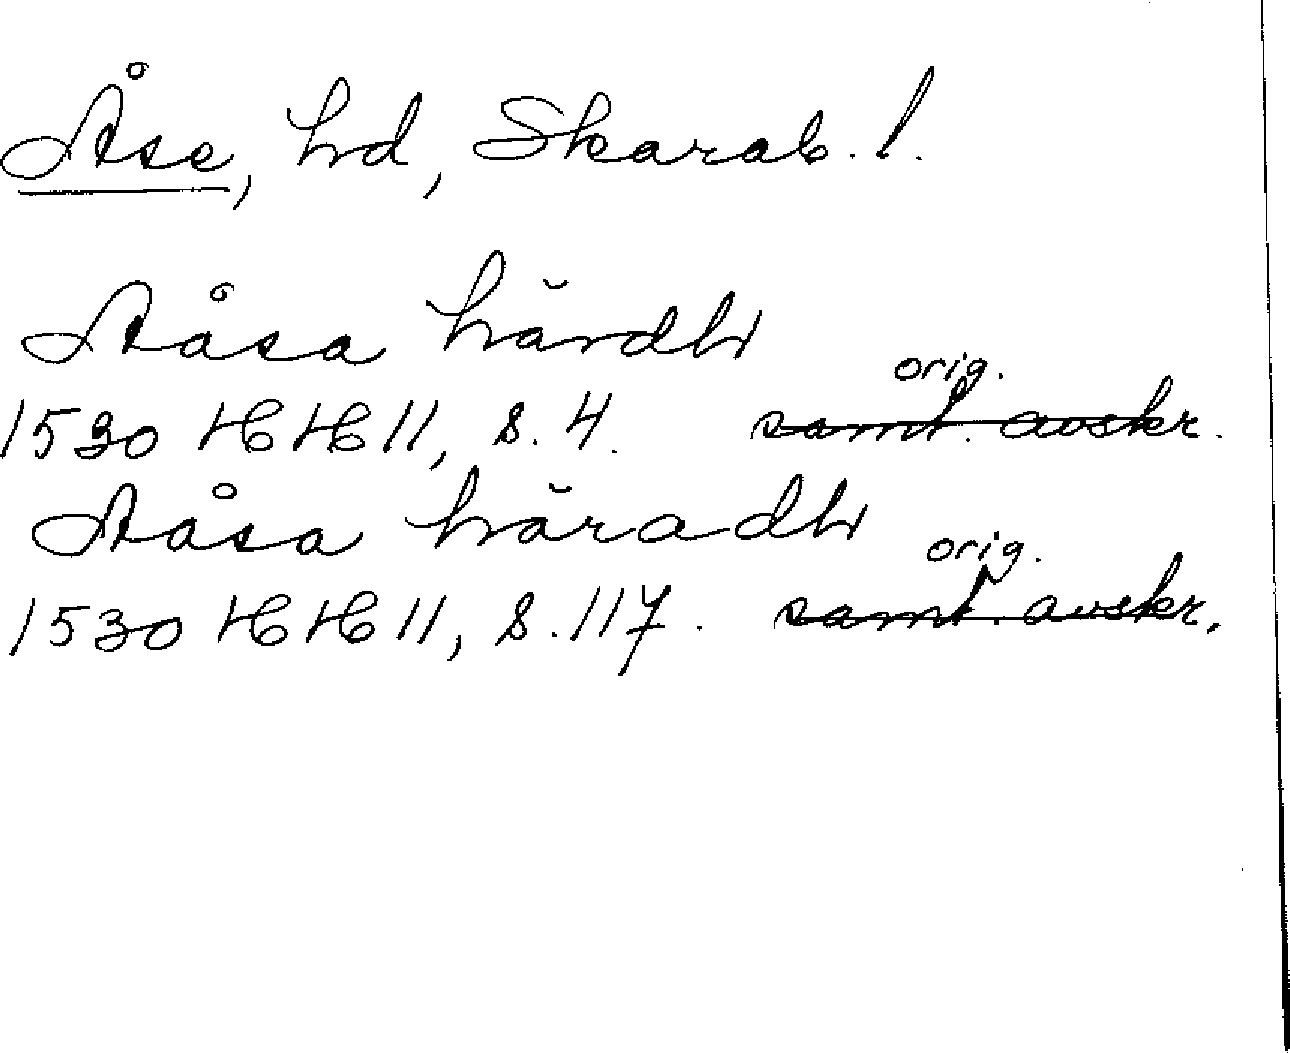 Åse, hd, Skarab. l.
Aåsa hărdh
orig.
1530 HH 11, s. 4. samt. avskr.
Aåsa hăradh
orig.
1530 HH 11, s. 117. samt. avskr.